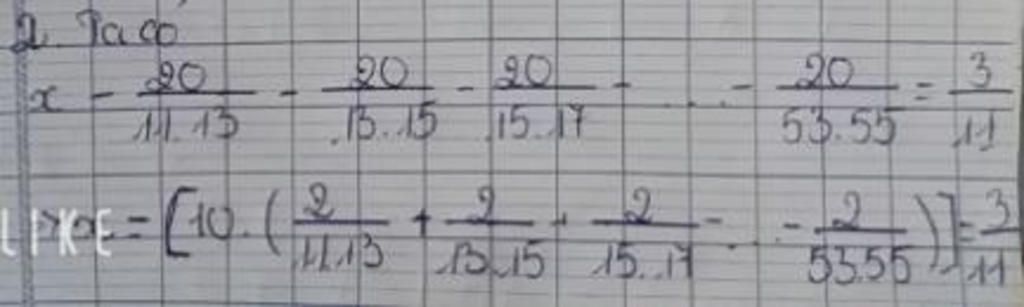 2. Ta có
x - 20/11.13 - 20/13.15 - 20/15.17 - ... - 20/53.55 = 3/11
x = [10.(2/11.13 + 2/13.15 + 2/15.17 - ... - 2/53.55)] = 3/11
LIKE